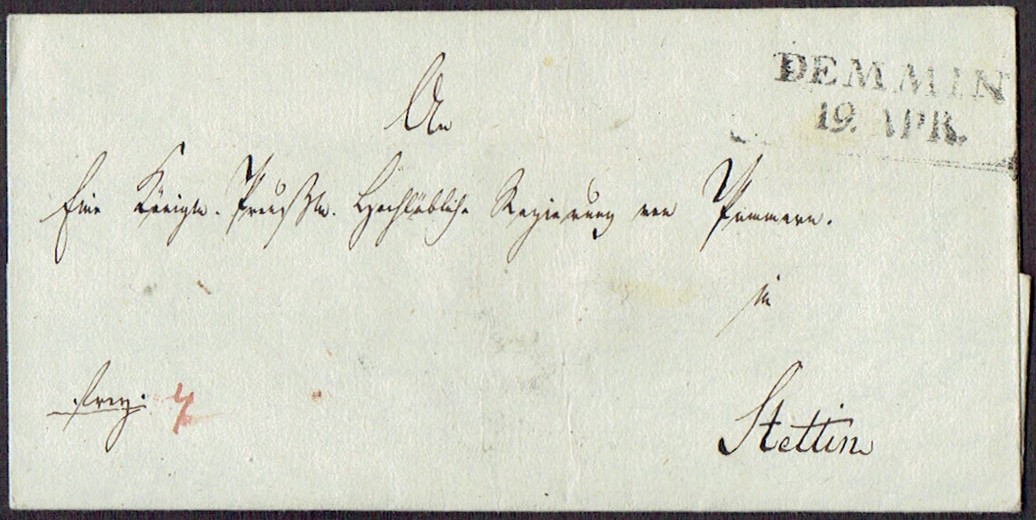 DEMMIN
19. APR.
An
Eine Königl. Preußl. Hochlöbliche Regierung von Pommern.
in
Stettin